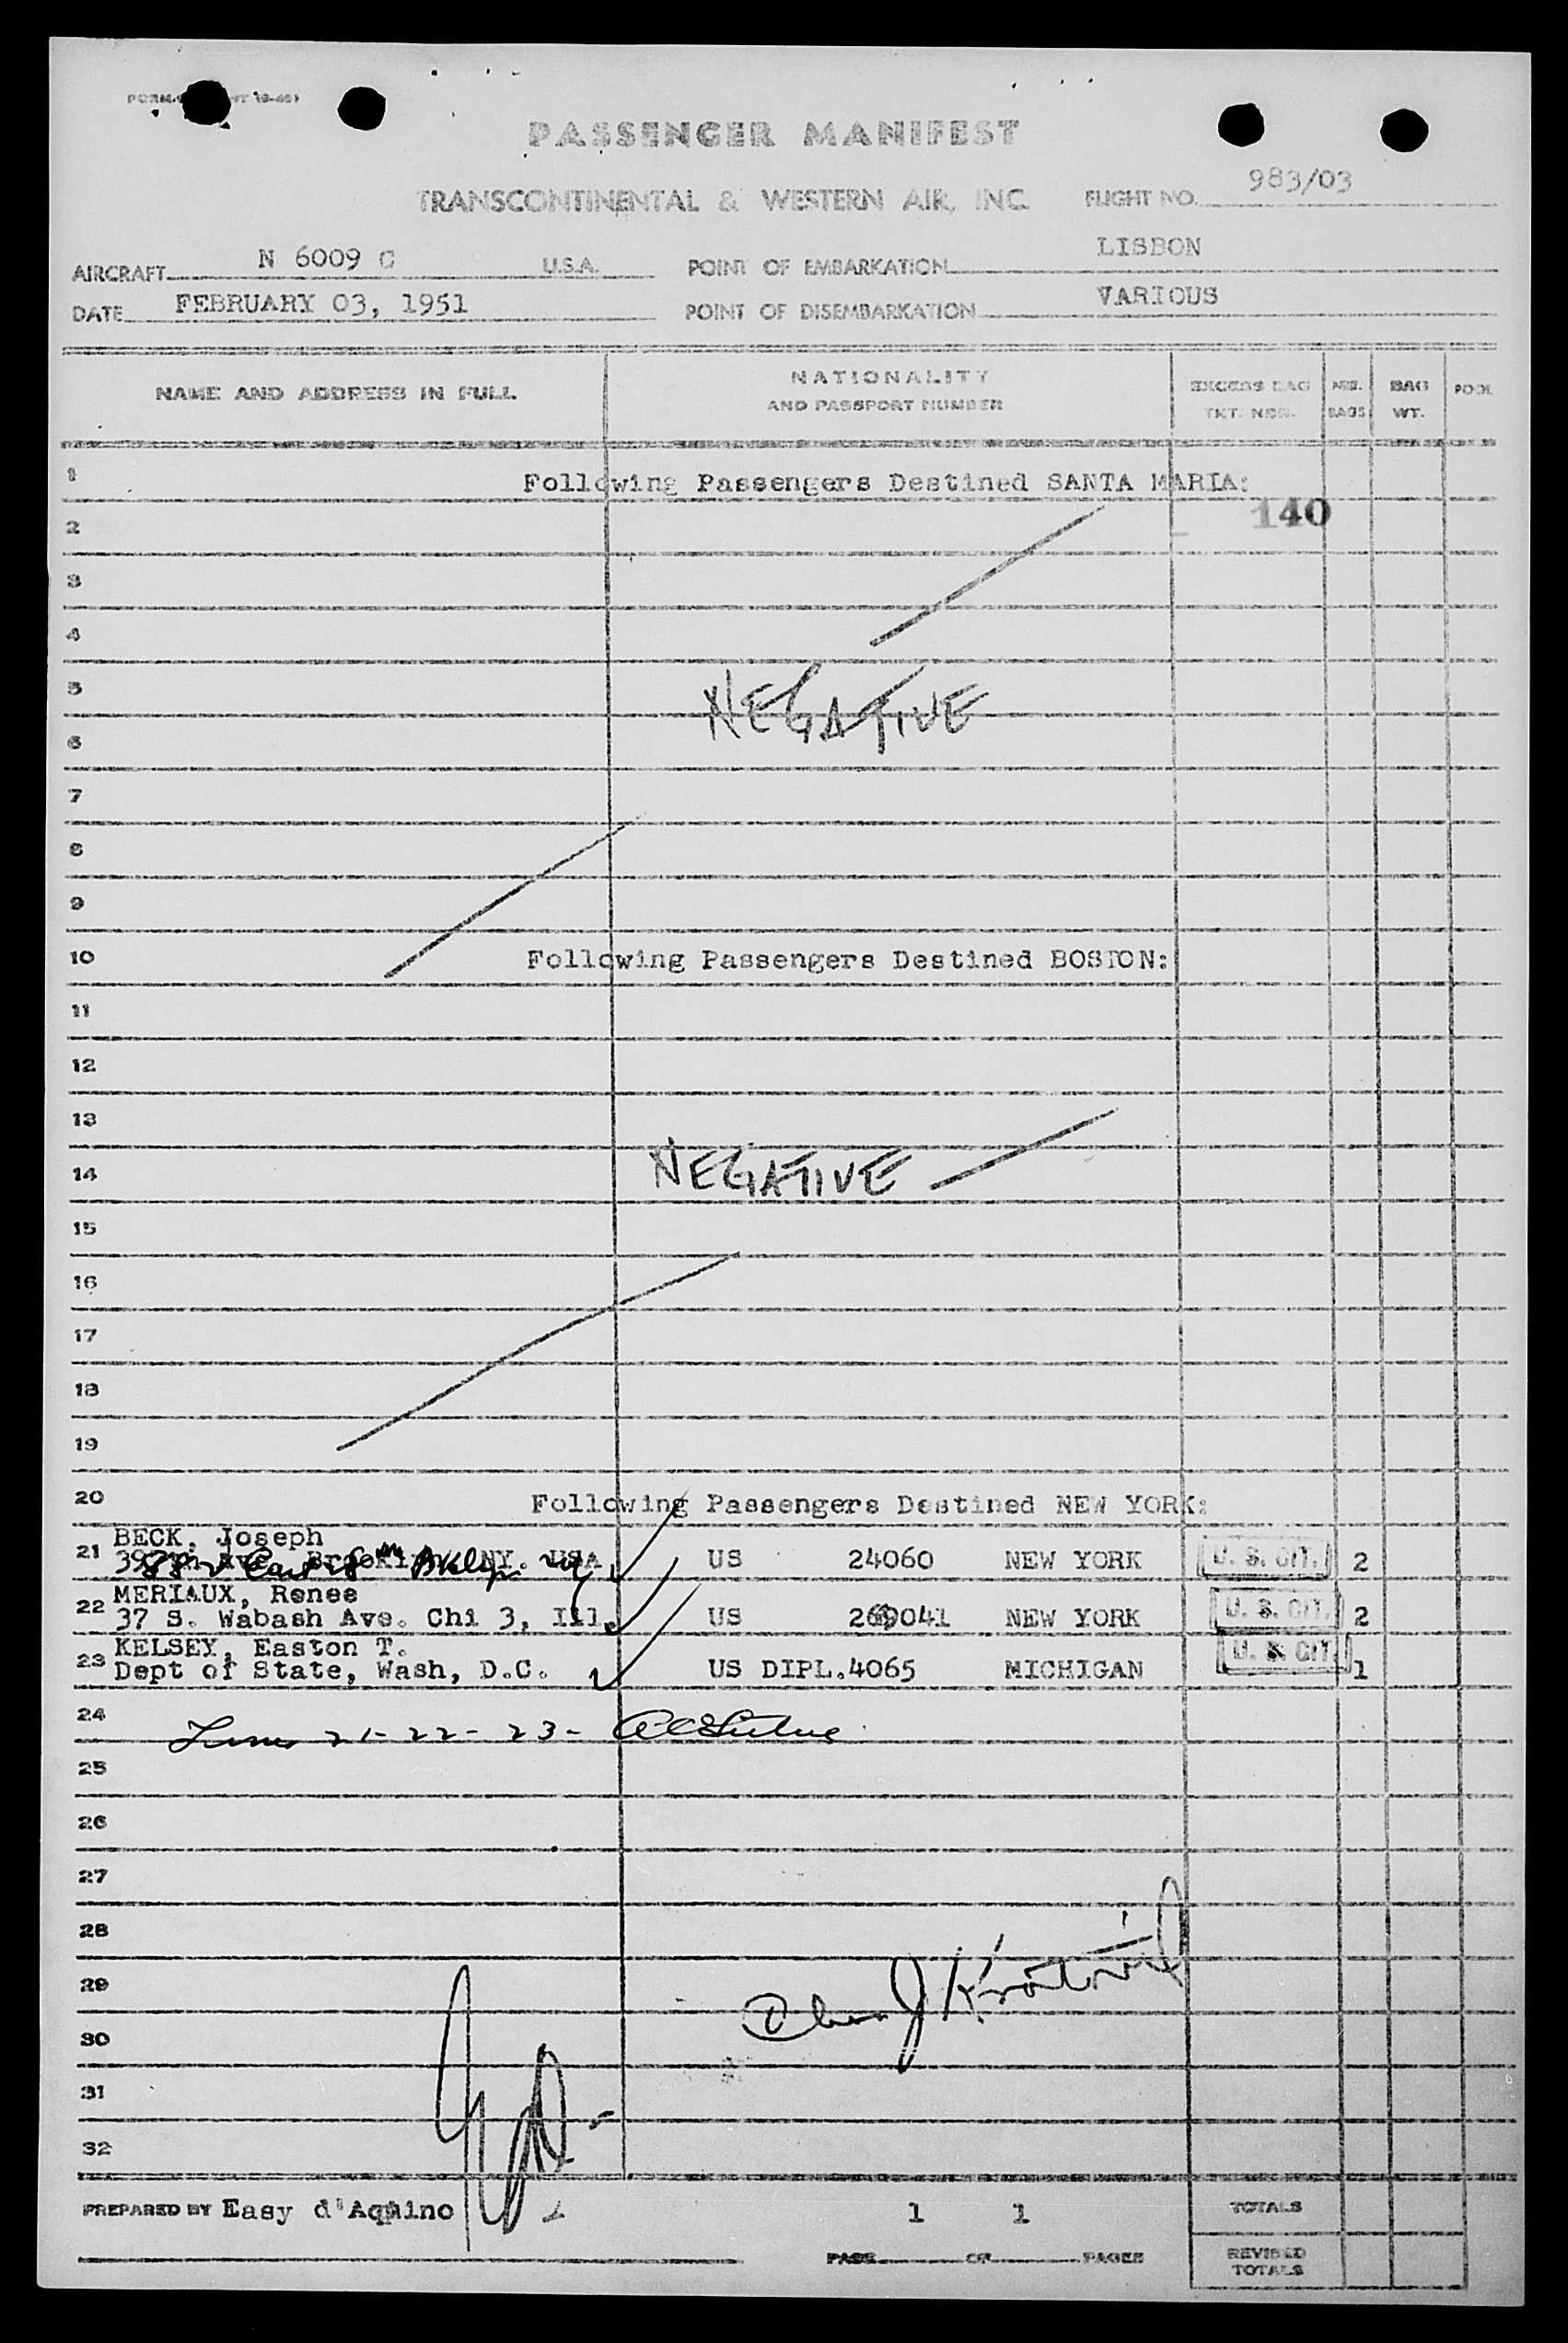 PASSENGER MANIFEST
TRANSCONTINENTAL & WESTERN AIR, INC. FLIGHT NO. 983/03
AIRCRAFT N 6009 C U.S.A. POINT OF EMBARKATION LISBON
DATE FEBRUARY 03, 1951 POINT OF DISEMBARKATION VARIOUS
NAME AND ADDRESS IN FULL NATIONALITY AND PASSPORT NUMBER EXCESS BAG TKT. NBR. NBR. BAGS BAG WT. POOL
1 Following Passengers Destined SANTA MARIA:
2 140
3
4
5 NEGATIVE
6
7
8
9
10 Following Passengers Destined BOSTON:
11
12
13
14 NEGATIVE
15
16
17
18
19
20 Following Passengers Destined NEW YORK:
BECK, Joseph
21 Ave. Brooklyn, NY. USA US 24060 NEW YORK U. S. CIT. 2
MERIAUX, Renee
22 37 S. Wabash Ave. Chi 3, Ill. US NEW YORK U. S. CIT. 2
KELSEY, Easton T.
23 Dept of State, Wash, D.C. US DIPL.4065 MICHIGAN U. S. CIT. 1
24 21-22-23-
25
26
27
28
29
30
31
32
PREPARED BY Easy d'Aquino 1 1 TOTALS
PAGE OF PAGES REVISED TOTALS